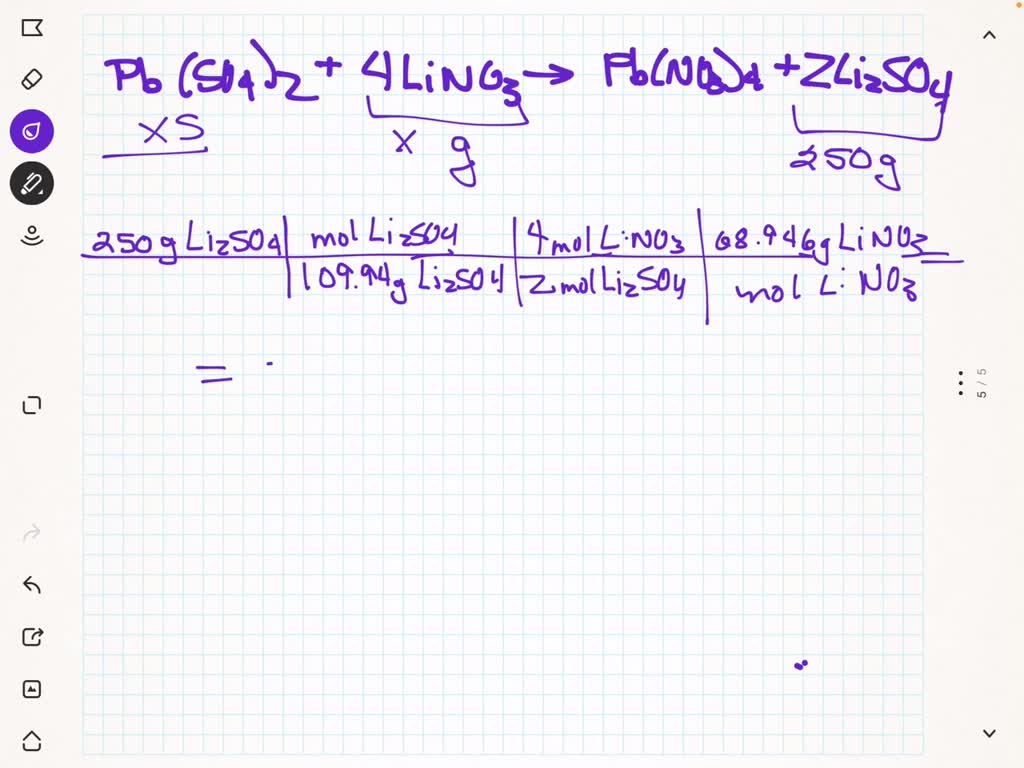 Pb(SO4)2 + 4LiNO3 → Pb(NO3)4 + 2Li2SO4
XS x g 250g
250g Li2SO4 | mol Li2SO4 | 4 mol LiNO3 | 68.946g LiNO3 =
109.94g Li2SO4 | 2 mol Li2SO4 | mol LiNO3
=
5 / 5